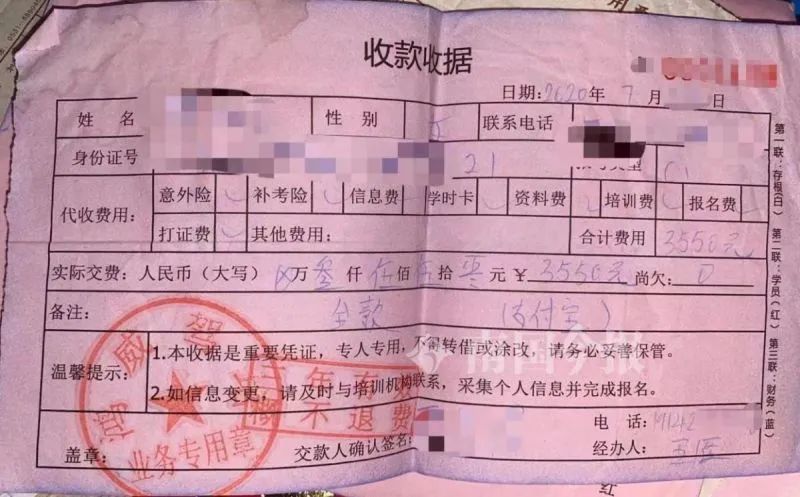 收款收据
日期:2020年7月 日
姓名 性别 联系电话
身份证号 21 C1
代收费用: 意外险 补考险 信息费 学时卡 资料费 培训费 报名费
打证费 其他费用: 合计费用 3550元
实际交费:人民币(大写) 万叁仟伍佰伍拾零元 ¥3550元 尚欠:0
备注: 全款 (支付宝)
温馨提示:
1.本收据是重要凭证,专人专用,不得转借或涂改,请务必妥善保管。
2.如信息变更,请及时与培训机构联系,采集个人信息并完成报名。
盖章: 交款人确认签名:
电话:
经办人:
第一联:存根(白) 第二联:学员(红) 第三联:财务(蓝)
鸿威驾
业务专用章
不退费
南国今报